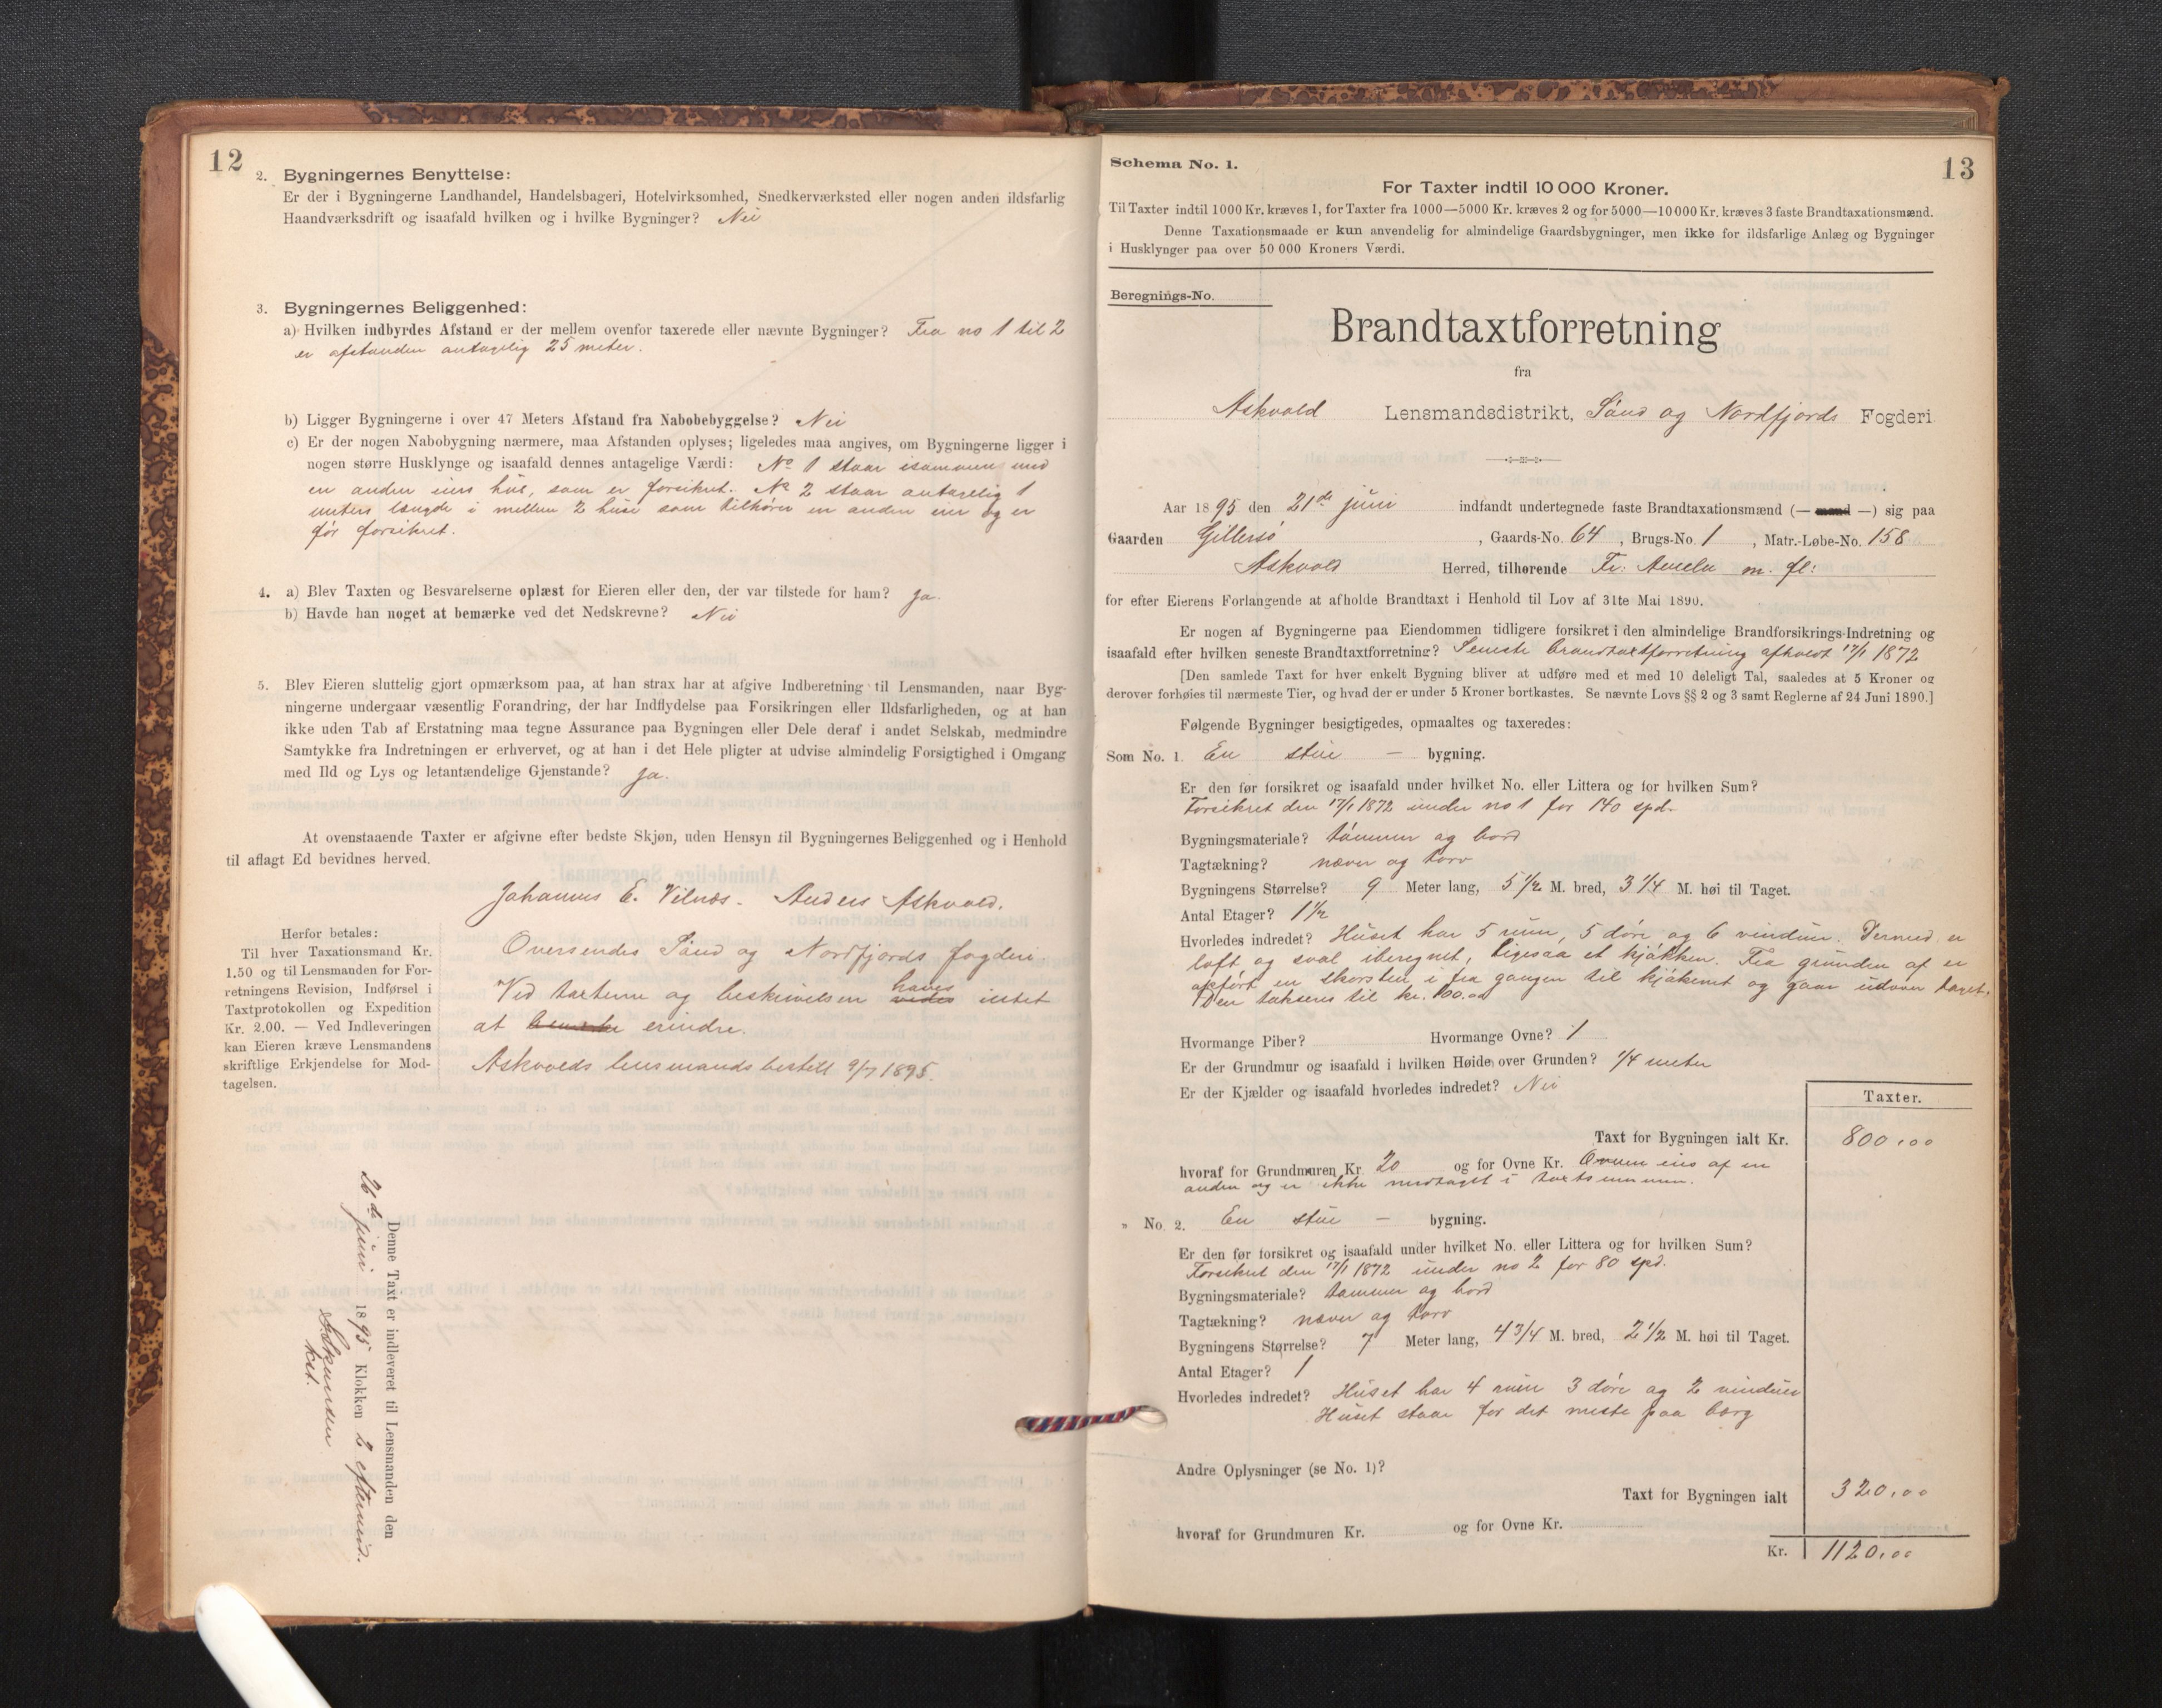 12
2. Bygningernes Benyttelse:
Er der i Bygningerne Landhandel, Handelsbageri, Hotelvirksomhed, Snedkerværksted eller nogen anden ildsfarlig
Haandværksdrift og isaafald hvilken og i hvilke Bygninger? Nei
3. Bygningernes Beliggenhed:
a) Hvilken indbyrdes Afstand er der mellem ovenfor taxerede eller nævnte Bygninger? Fra no 1 til 2
er afstanden antagelig 25 meter.
b) Ligger Bygningerne i over 47 Meters Afstand fra Nabobebyggelse? Nei
c) Er der nogen Nabobygning nærmere, maa Afstanden oplyses; ligeledes maa angives, om Bygningerne ligger i
nogen større Husklynge og isaafald dennes antagelige Værdi: No 1 staar isammen med
en anden eiers hus, som er forsikret. No 2 staar antagelig 1
meters længde i mellem 2 huse som tilhører en anden eier og er
før forsikret.
4. a) Blev Taxten og Besvarelserne oplæst for Eieren eller den, der var tilstede for ham? Ja.
b) Havde han noget at bemærke ved det Nedskrevne? Nei
5. Blev Eieren sluttelig gjort opmærksom paa, at han strax har at afgive Indberetning til Lensmanden, naar Byg-
ningerne undergaar væsentlig Forandring, der har Indflydelse paa Forsikringen eller Ildsfarligheden, og at han
ikke uden Tab af Erstatning maa tegne Assurance paa Bygningen eller Dele deraf i andet Selskab, medmindre
Samtykke fra Indretningen er erhvervet, og at han i det Hele pligter at udvise almindelig Forsigtighed i Omgang
med Ild og Lys og letantændelige Gjenstande? Ja.
At ovenstaaende Taxter er afgivne efter bedste Skjøn, uden Hensyn til Bygningernes Beliggenhed og i Henhold
til aflagt Ed bevidnes herved.
Johannes E. Vilnæs. Anders Askvold.
Herfor betales:
Til hver Taxationsmand Kr.
1.50 og til Lensmanden for For-
retningens Revision, Indførsel i
Taxtprotokollen og Expedition
Kr. 2.00. — Ved Indleveringen
kan Eieren kræve Lensmandens
skriftlige Erkjendelse for Mod-
tagelsen.
Oversendes Sønd og Nordfjords fogderi.
Ved taxterne og beskrivelsen haves intet
at erindre.
Askvolds lensmandsbestill 9/7 1895.
Denne Taxt er indleveret til Lensmanden den
26de juni 1895 Klokken 2 eftermid.
kst.
13
Schema No. 1.
For Taxter indtil 10 000 Kroner.
Til Taxter indtil 1000 Kr. kræves 1, for Taxter fra 1000—5000 Kr. kræves 2 og for 5000—10 000 Kr. kræves 3 faste Brandtaxationsmænd.
Denne Taxationsmaade er kun anvendelig for almindelige Gaardsbygninger, men ikke for ildsfarlige Anlæg og Bygninger
i Husklynger paa over 50 000 Kroners Værdi.
Beregnings-No.
Brandtaxtforretning
fra
Askvold Lensmandsdistrikt, Sønd og Nordfjords Fogderi
Aar 1895 den 21de juni indfandt undertegnede faste Brandtaxationsmænd (— mand —) sig paa
Gaarden Gillersø, Gaards-No. 64, Brugs-No. 1, Matr.-Løbe-No. 158
Askvold Herred, tilhørende Fr: m. fl:
for efter Eierens Forlangende at afholde Brandtaxt i Henhold til Lov af 31te Mai 1890.
Er nogen af Bygningerne paa Eiendommen tidligere forsikret i den almindelige Brandforsikrings-Indretning og
isaafald efter hvilken seneste Brandtaxtforretning? Seneste brandtaxtforretning afholdt 17/1 1872
[Den samlede Taxt for hver enkelt Bygning bliver at udføre med et med 10 deleligt Tal, saaledes at 5 Kroner og
derover forhøies til nærmeste Tier, og hvad der er under 5 Kroner bortkastes. Se nævnte Lovs §§ 2 og 3 samt Reglerne af 24 Juni 1890.]
Følgende Bygninger besigtigedes, opmaaltes og taxeredes:
Som No. 1. En stue — bygning.
Er den før forsikret og isaafald under hvilket No. eller Littera og for hvilken Sum?
Forsikret den 17/1 1872 under no 1 for 140 spd.
Bygningsmateriale? tømmer og bord
Tagtækning? næver og torv
Bygningens Størrelse? 9 Meter lang, 5 1/2 M. bred, 3 1/4 M. høi til Taget.
Antal Etager? 1 1/2
Hvorledes indredet? Huset har 5 rum, 5 døre og 6 vinduer. Dermed er
loft og sval iberegnet, ligesaa et kjøkken. Fra grunden af er
opført en skorsten i fra gangen til kjøkenet og gaar udover taget.
Den takseres til kr. 100.00
Hvormange Piber? Hvormange Ovne? 1
Er der Grundmur og isaafald i hvilken Høide over Grunden? 1/4 meter
Er der Kjælder og isaafald hvorledes indredet? Nei
Taxter.
Taxt for Bygningen ialt Kr. 800.00
hvoraf for Grundmuren Kr. 20 og for Ovne Kr. Ovnen eies af en
anden og er ikke medtaget i taxtsummen.
" No. 2. En stue — bygning.
Er den før forsikret og isaafald under hvilket No. eller Littera og for hvilken Sum?
Forsikret den 17/1 1872 under no 2 for 80 spd.
Bygningsmateriale? tømmer og bord
Tagtækning? næver og torv
Bygningens Størrelse? 7 Meter lang, 4 3/4 M. bred, 2 1/2 M. høi til Taget.
Antal Etager? 1
Hvorledes indredet? Huset har 4 rum 3 døre og 2 vinduer
Huset staar for det meste paa berg
Andre Oplysninger (se No. 1)?
Taxt for Bygningen ialt 320.00
hvoraf for Grundmuren Kr. og for Ovne Kr.
Kr. 1120.00